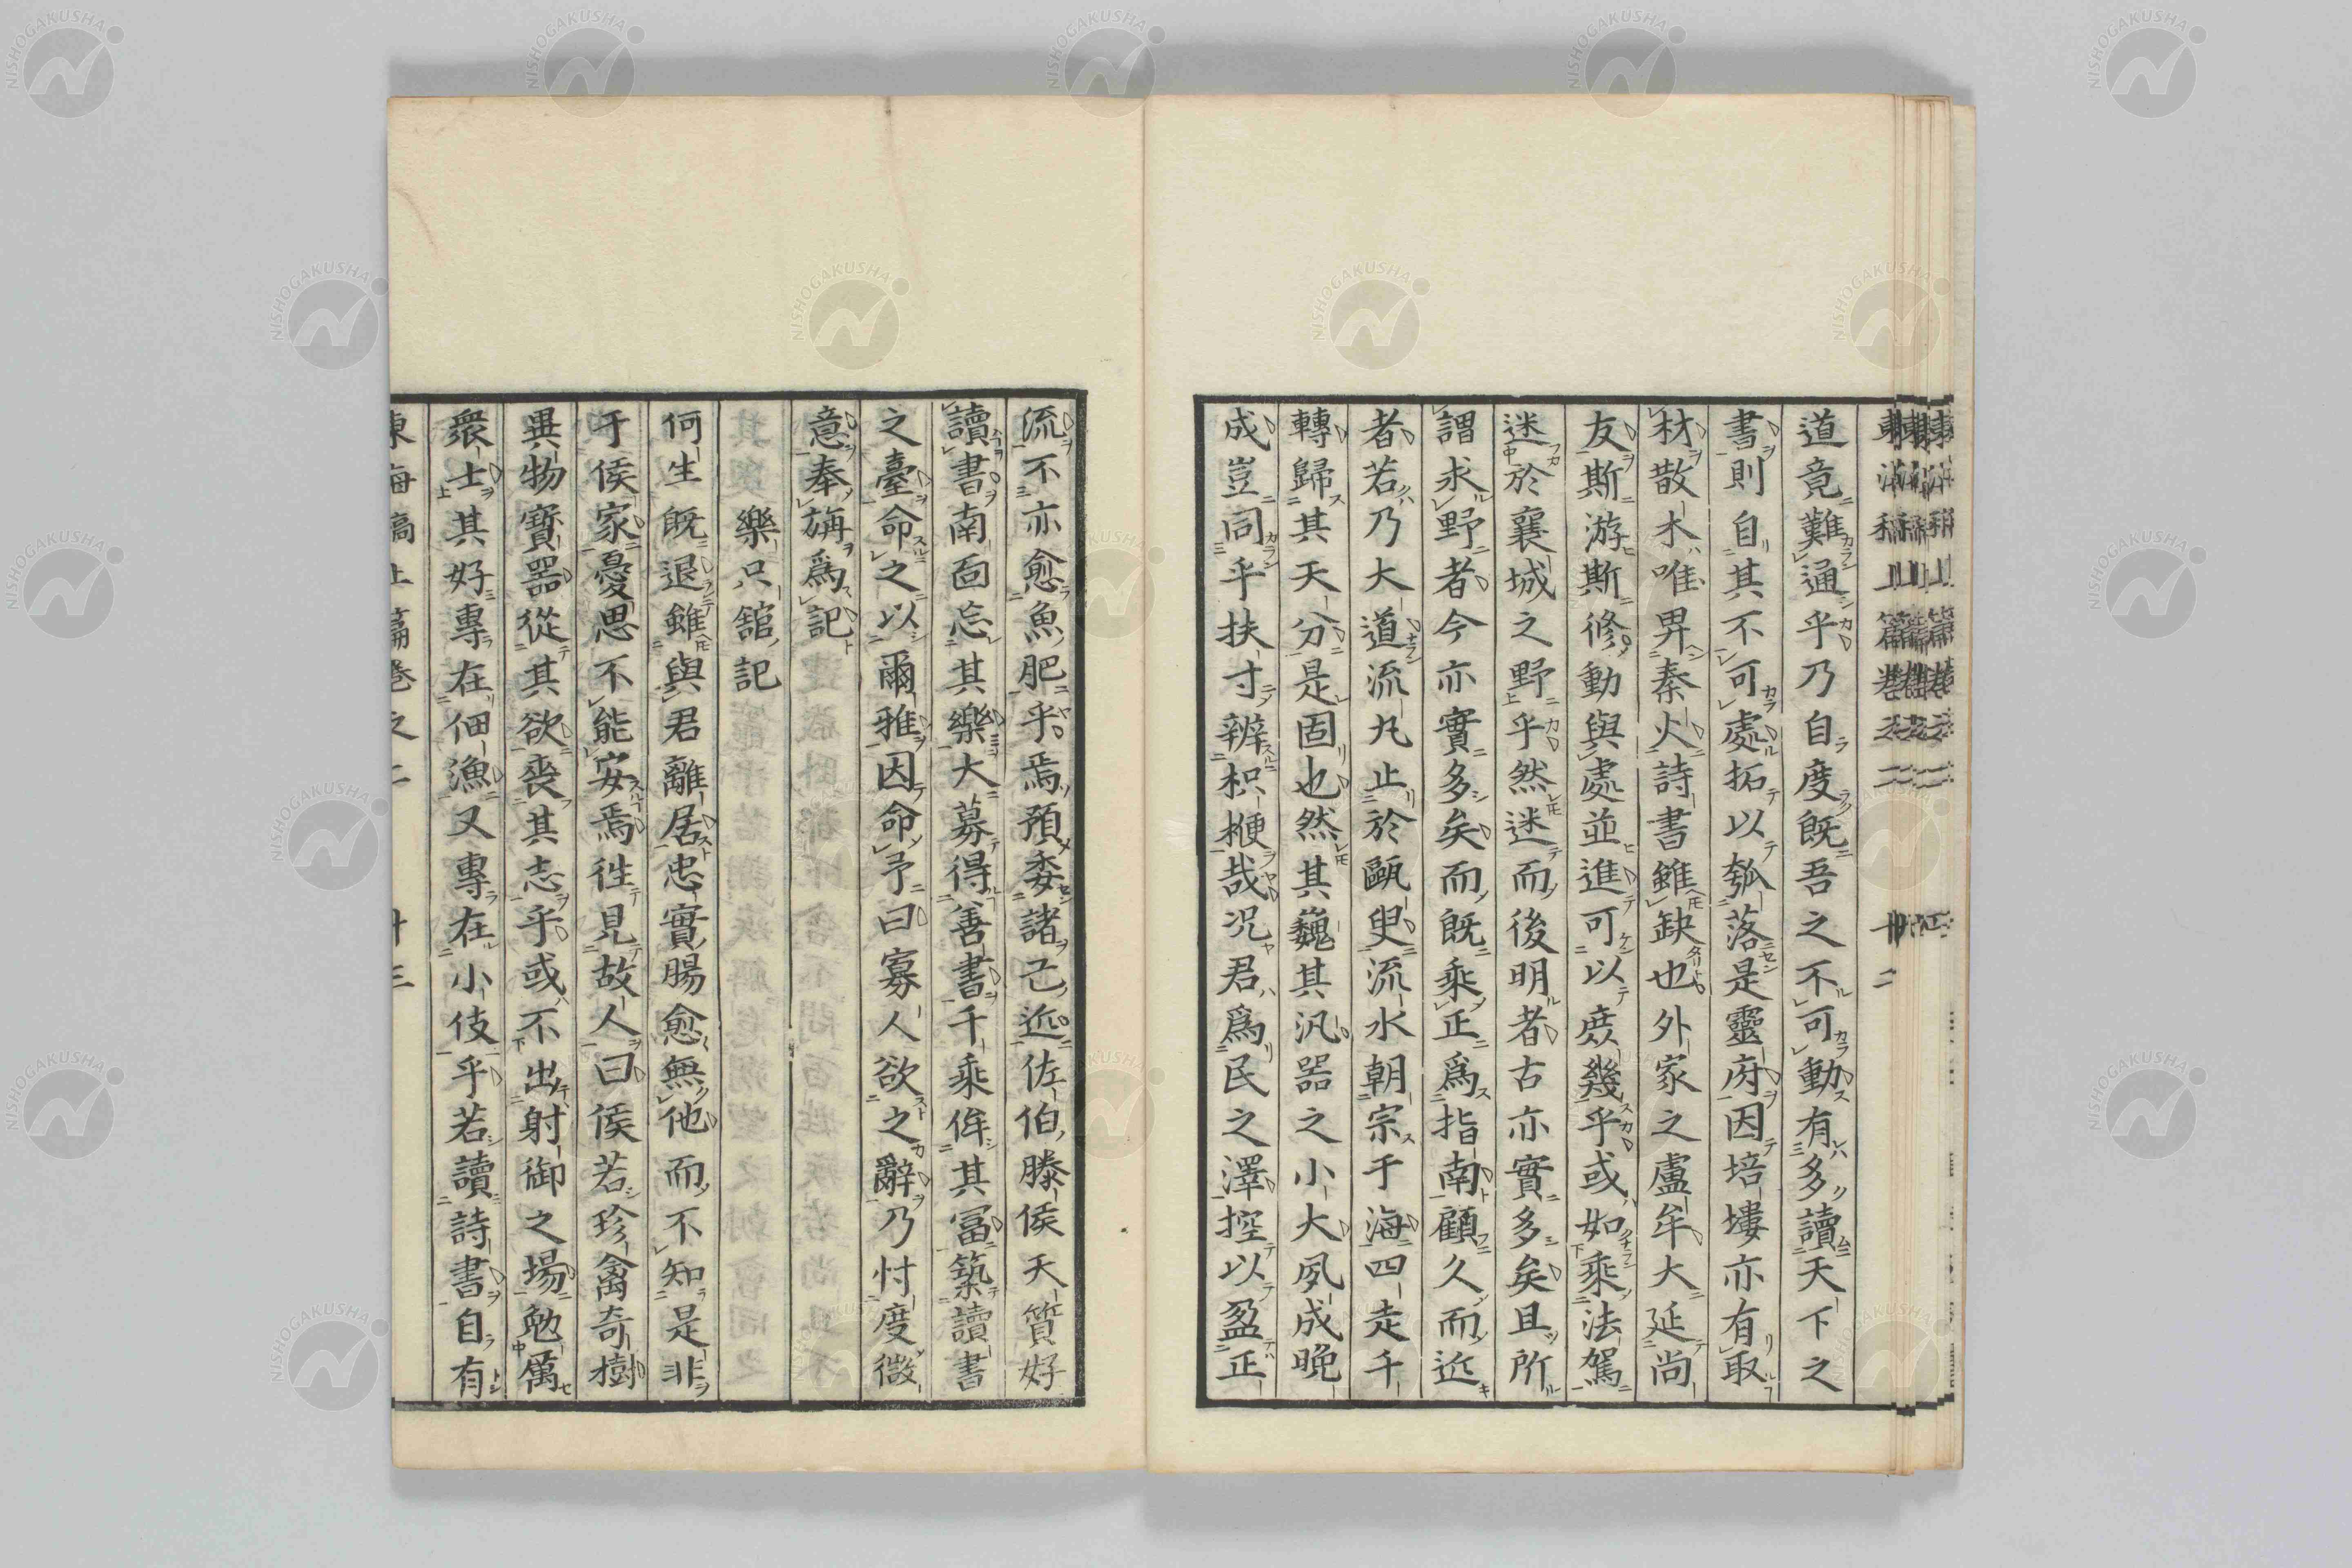 道竟難通乎乃自度既吾之不可動有多讀天下之
書則自其不可處拓以瓠落是靈府因培塿亦有取
材散木唯畀秦火詩書雖缺也外家之盧牟大延尚
友斯游斯修動與處並進可以庶幾乎或如乘法駕
迷於襄城之野乎然迷而後明者古亦實多矣且所
謂求野者今亦實多矣而既乘正爲指南顧久而近
者若乃大道流丸止於甌臾流水朝宗于海四走千
轉歸其天分是固也然其巍其汎器之小大夙成晚
成豈同乎扶寸辨枳梗哉况君爲民之澤控以盈正
流不亦愈魚肥乎焉預委諸己近佐伯滕侯天質好
讀書南面忘其樂大募得善書千乘侔其冨築讀書
之臺命之以爾雅因命予曰寡人欲之辭乃忖度微
意奉旃爲記
樂只舘記
何生既退雖與君離居忠實腸愈無他而不知是非
于侯家憂思不能安焉徃見故人曰侯若珍禽奇樹
異物寶器從其欲喪其志乎或不出射御之場勉厲
衆士其好專在佃漁又專在小伎乎若讀詩書自有
東海稿上篇卷之二 十三